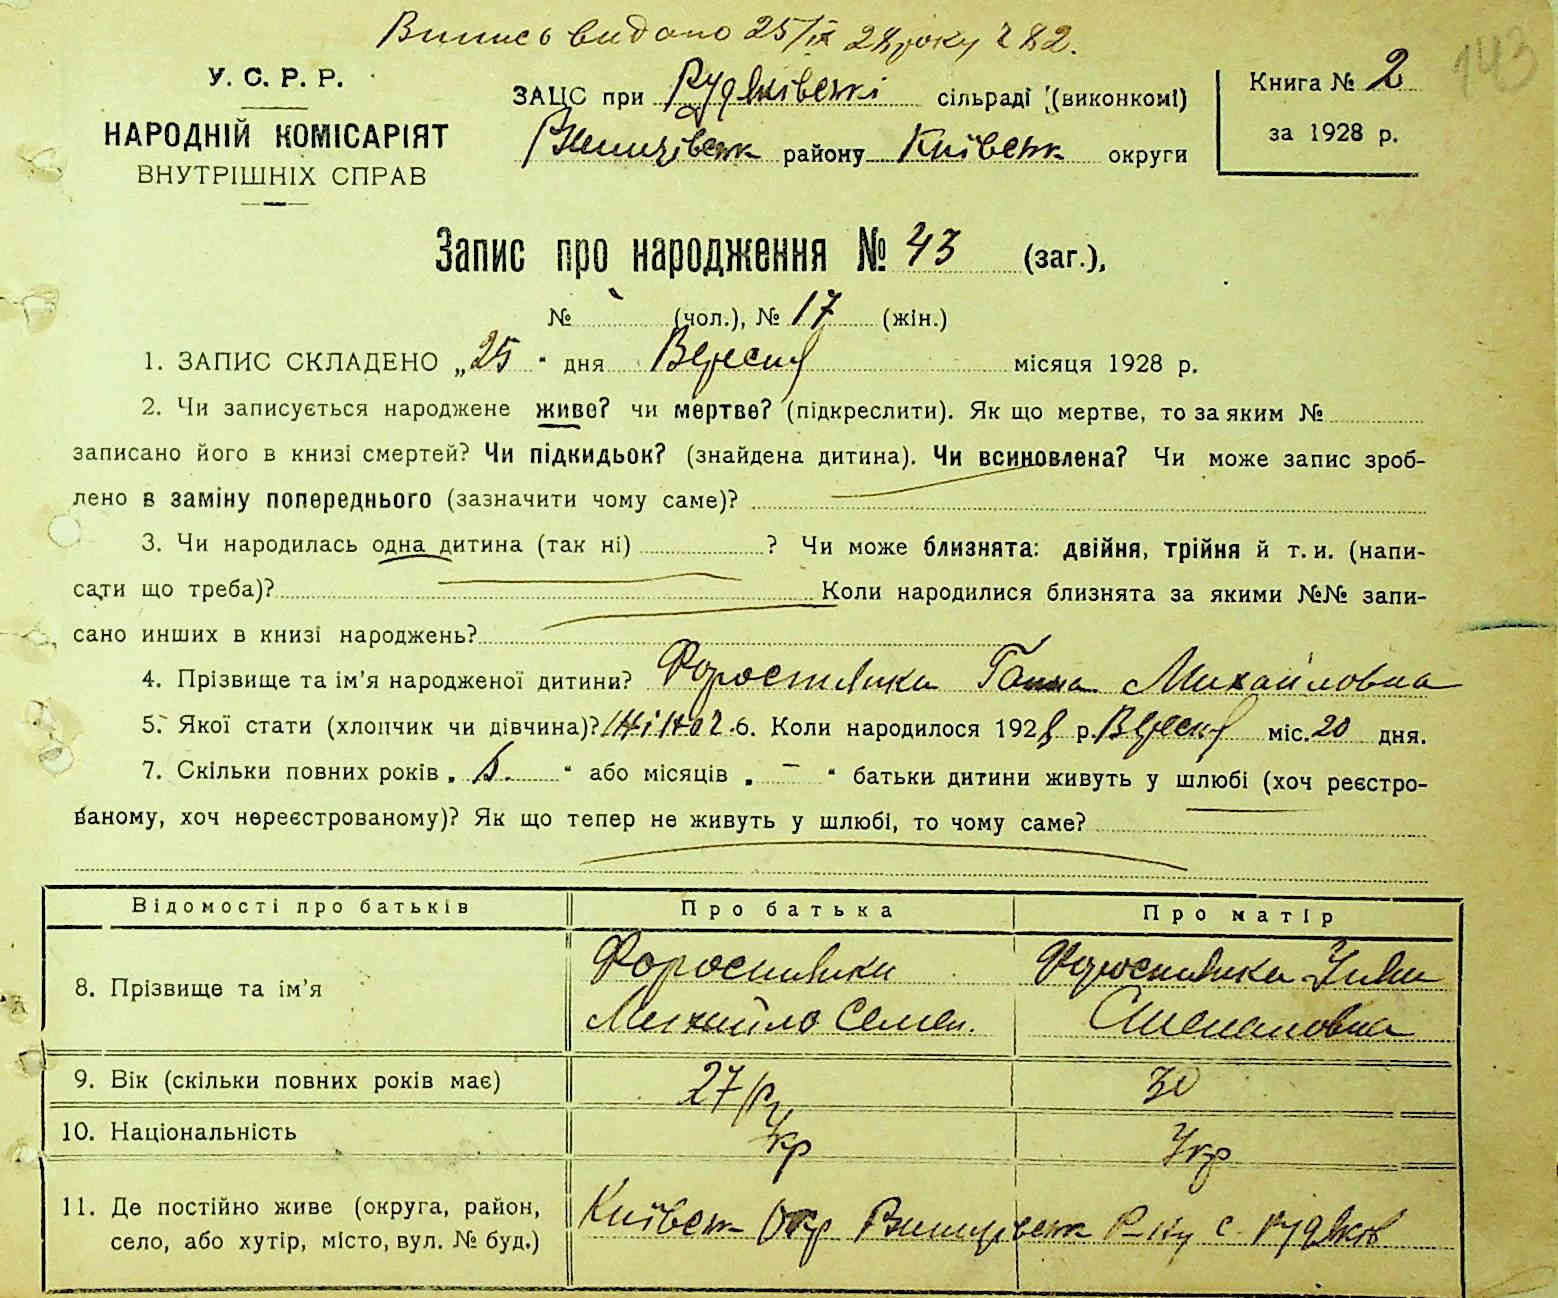 Випись видано 25/IX 28 року № 82.
143
У. С. Р. Р.
НАРОДНІЙ КОМІСАРІЯТ
ВНУТРІШНІХ СПРАВ
ЗАЦС при Рудяківській сільраді (виконкомі)
Ринищівськ району Київськ округи
Книга № 2
за 1928 р.
Запис про народження № 43 (заг.),
№ (чол.), № 17 (жін.)
1. ЗАПИС СКЛАДЕНО „25“ дня Вересня місяця 1928 р.
2. Чи записується народжене живе? чи мертве? (підкреслити). Як що мертве, то за яким №
записано його в книзі смертей? Чи підкидьок? (знайдена дитина). Чи всиновлена? Чи може запис зроб-
лено в заміну попереднього (зазначити чому саме)?
3. Чи народилась одна дитина (так ні) ? Чи може близнята: двійня, трійня й т. и. (напи-
сати що треба)? Коли народилися близнята за якими №№ запи-
сано инших в книзі народжень?
4. Прізвище та ім'я народженої дитини? Форостянка Ганна Михайловна
5. Якої стати (хлопчик чи дівчина)? жіноч. 6. Коли народилося 1928 р. Вересня міс. 20 дня.
7. Скільки повних років „ 5. “ або місяців „ — “ батьки дитини живуть у шлюбі (хоч реєстро-
ваному, хоч нереєстрованому)? Як що тепер не живуть у шлюбі, то чому саме?
Відомості про батьків Про батька Про матір
8. Прізвище та ім'я
Форостянки
Михайло Семен.
Форостянка Уляни
Степановна
9. Вік (скільки повних років має) 27/р. 30
10. Національність Укр Укр
11. Де постійно живе (округа, район,
село, або хутір, місто, вул. № буд.)
Київськ Окр Ринищівськ Р-ну с. Рудяків